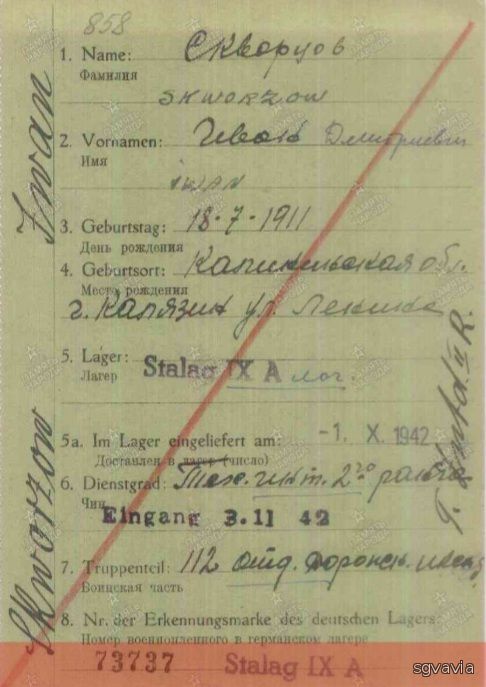 858
1. Name: Скворцов
Фамилия
SKWORZOW
2. Vornamen: Иван Дмитриевич
Имя
IWAN
3. Geburtstag: 18-7-1911
День рождения
4. Geburtsort: Калининская обл.
Место рождения
г. Калязин ул. Ленина
5. Lager: Stalag IX A
Лагерь
5a. Im Lager eingeliefert am: -1. X. 1942
Доставлен в лагерь (число)
6. Dienstgrad: Тех. инт. 2го ранга
Чин
Eingang 3.11 42
7. Truppenteil: 112 отд.
Воинская часть
8. Nr. der Erkennungsmarke des deutschen Lagers:
Номер военнопленного в германском лагере
73737 Stalag IX A
Skworzow Iwan
sgvavia